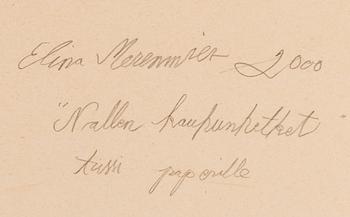 Elina Merenmies 2000
"Nallen kaupunkitket"
tussi paperille